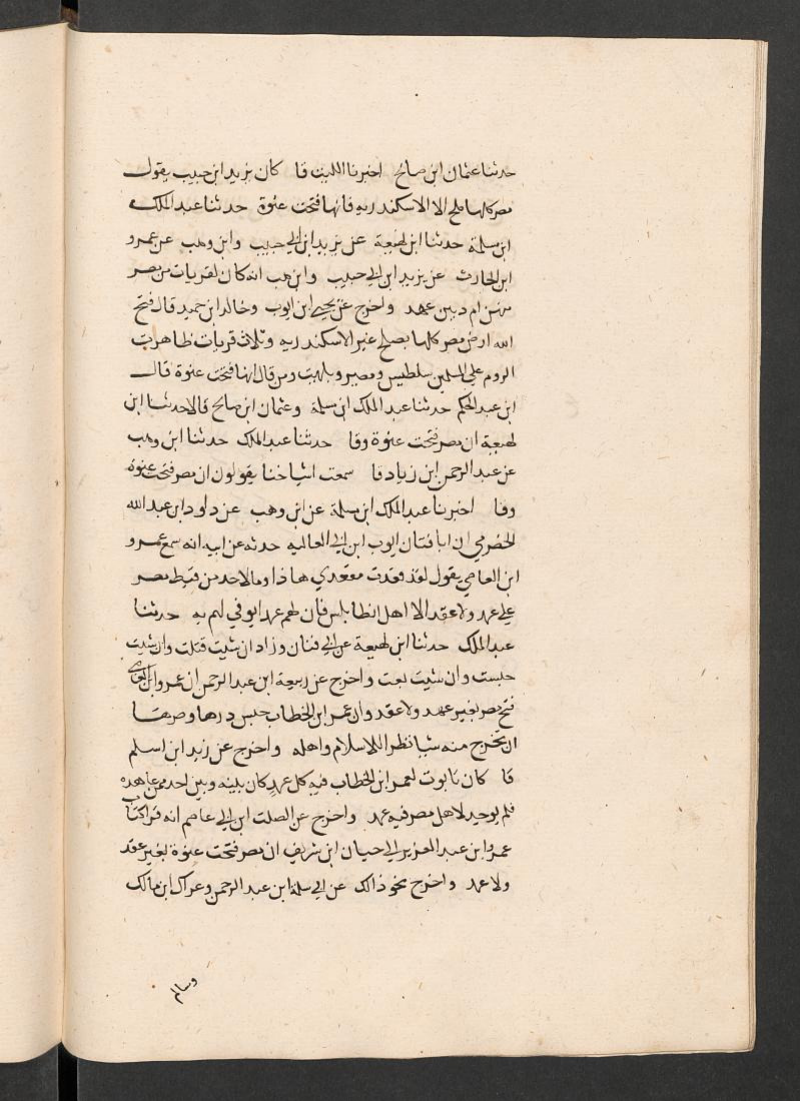 حدثنا عثمان ابن صالح اخبرنا الليث قا كان يزيد ابن حبيب يقول
مصر كلها صلح الا الاسكندريه فانها فتحت عنوة حدثنا عبد الملك
ابن سلمة حدثنا ابن لهيعة عن يزيد ابن ابي حبيب وابن وهب عن عمرو
ابن الحارث عن يزيد ابن ابي حبيب وابن وهب انه كان لقريات من مصر
منهن ام دبين عهد واخرج عن يحيى ابن ايوب وخالد ابن حميد قال فتح
الله ارض مصر كلها بصلح غير الاسكندريه وثلاث قريات ظاهرت
الروم على المسلمين سلطيس ومصير وبلهيت ومن قال انها فتحت عنوة قال
ابن عبد الحكم حدثنا عبد الملك ابن سلمة وعثمان ابن صالح قالا حدثنا ابن
لهيعة ان مصر فتحت عنوة وقا حدثنا عبد الملك حدثنا ابن وهب
عن عبد الرحمن ابن زياد قا سمعت اشياخنا يقولون ان مصر فتحت عنوة
وقا اخبرنا عبد الملك ابن سلمة عن ابن وهب عن داود ابن عبد الله
الحضرمي ان ابا فتان ايوب ابن ابي العاليه حدثه عن ابيه انه سمع عمرو
ابن العاصي يقول لقد قعدت مقعدي هاذا وما لاحد من قبط مصر
علي عهد ولا عقد الا اهل انطابلس فان لهم عهد ايوفي لهم به حدثنا
عبد الملك حدثنا ابن لهيعة عن ابي فنان وزاد ان شيت قتلت وان شيت
حبست وان شيت بعت واخرج عن ربيعة ابن عبد الرحمن ان عمرو ابن العاصي
فتح مصر بغير عهد ولا عقد وان عمر ابن الخطاب حبس درها وصرها
ان يخرج منه شيا نظرا للاسلام واهله واخرج عن زيد ابن اسلم
قا كان تابوت لعمر ابن الخطاب فيه كل عهد كان بلينه وبين احد ممن عاهده
فلم يوجد لاهل مصر فيه عهد واخرج عن الصلت ابن ابي عاصم انه قرا كتاب
عمر وابن عبد العزيز الي حيان ابن شريف ان مصر فتحت عنوة بغير عقد
ولا عهد واخرج نحو ذالك عن ابي سلمة ابن عبد الرحمن وعراك ابن مالك
وسالم